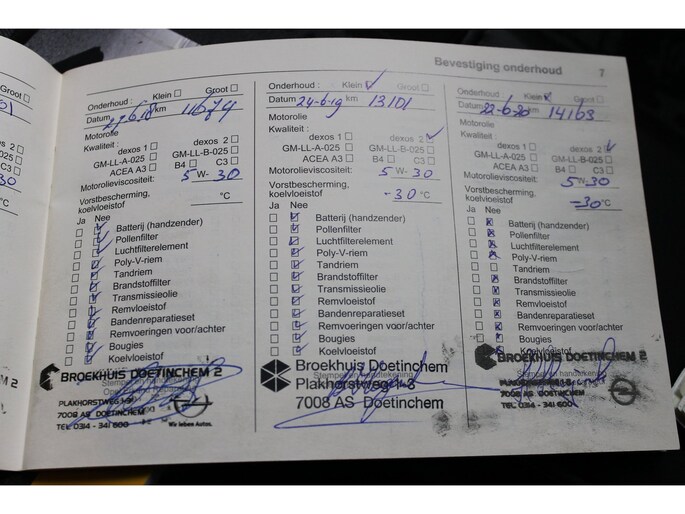 Bevestiging onderhoud 7
Onderhoud : Klein Groot
Datum 27-6-18 km 11674
Motorolie
Kwaliteit :
dexos 1 dexos 2
GM-LL-A-025 GM-LL-B-025
ACEA A3 B4 C3
Motorolieviscositeit: 5 W- 30
Vorstbescherming,
koelvloeistof °C
Ja Nee
Batterij (handzender)
Pollenfilter
Luchtfilterelement
Poly-V-riem
Tandriem
Brandstoffilter
Transmissieolie
Remvloeistof
Bandenreparatieset
Remvoeringen voor/achter
Bougies
Koelvloeistof
BROEKHUIS DOETINCHEM 2
PLAKHORSTWEG 1-3
7008 AS DOETINCHEM
TEL. 0314 - 341 600
Wir leben Autos.
Onderhoud : Klein Groot
Datum 24-6-19 km 13101
Motorolie
Kwaliteit :
dexos 1 dexos 2
GM-LL-A-025 GM-LL-B-025
ACEA A3 B4 C3
Motorolieviscositeit: 5 W-30
Vorstbescherming,
koelvloeistof -30 °C
Ja Nee
Batterij (handzender)
Pollenfilter
Luchtfilterelement
Poly-V-riem
Tandriem
Brandstoffilter
Transmissieolie
Remvloeistof
Bandenreparatieset
Remvoeringen voor/achter
Bougies
Koelvloeistof
Broekhuis Doetinchem
Plakhorstweg 1-3
7008 AS Doetinchem
Onderhoud : Klein Groot
Datum 22-6-20 km 14163
Motorolie
Kwaliteit :
dexos 1 dexos 2
GM-LL-A-025 GM-LL-B-025
ACEA A3 B4 C3
Motorolieviscositeit: 5 W-30
Vorstbescherming,
koelvloeistof -30 °C
Ja Nee
Batterij (handzender)
Pollenfilter
Luchtfilterelement
Poly-V-riem
Tandriem
Brandstoffilter
Transmissieolie
Remvloeistof
Bandenreparatieset
Remvoeringen voor/achter
Bougies
Koelvloeistof
BROEKHUIS DOETINCHEM 2
7008 AS DOETINCHEM
TEL. 0314 - 341 600